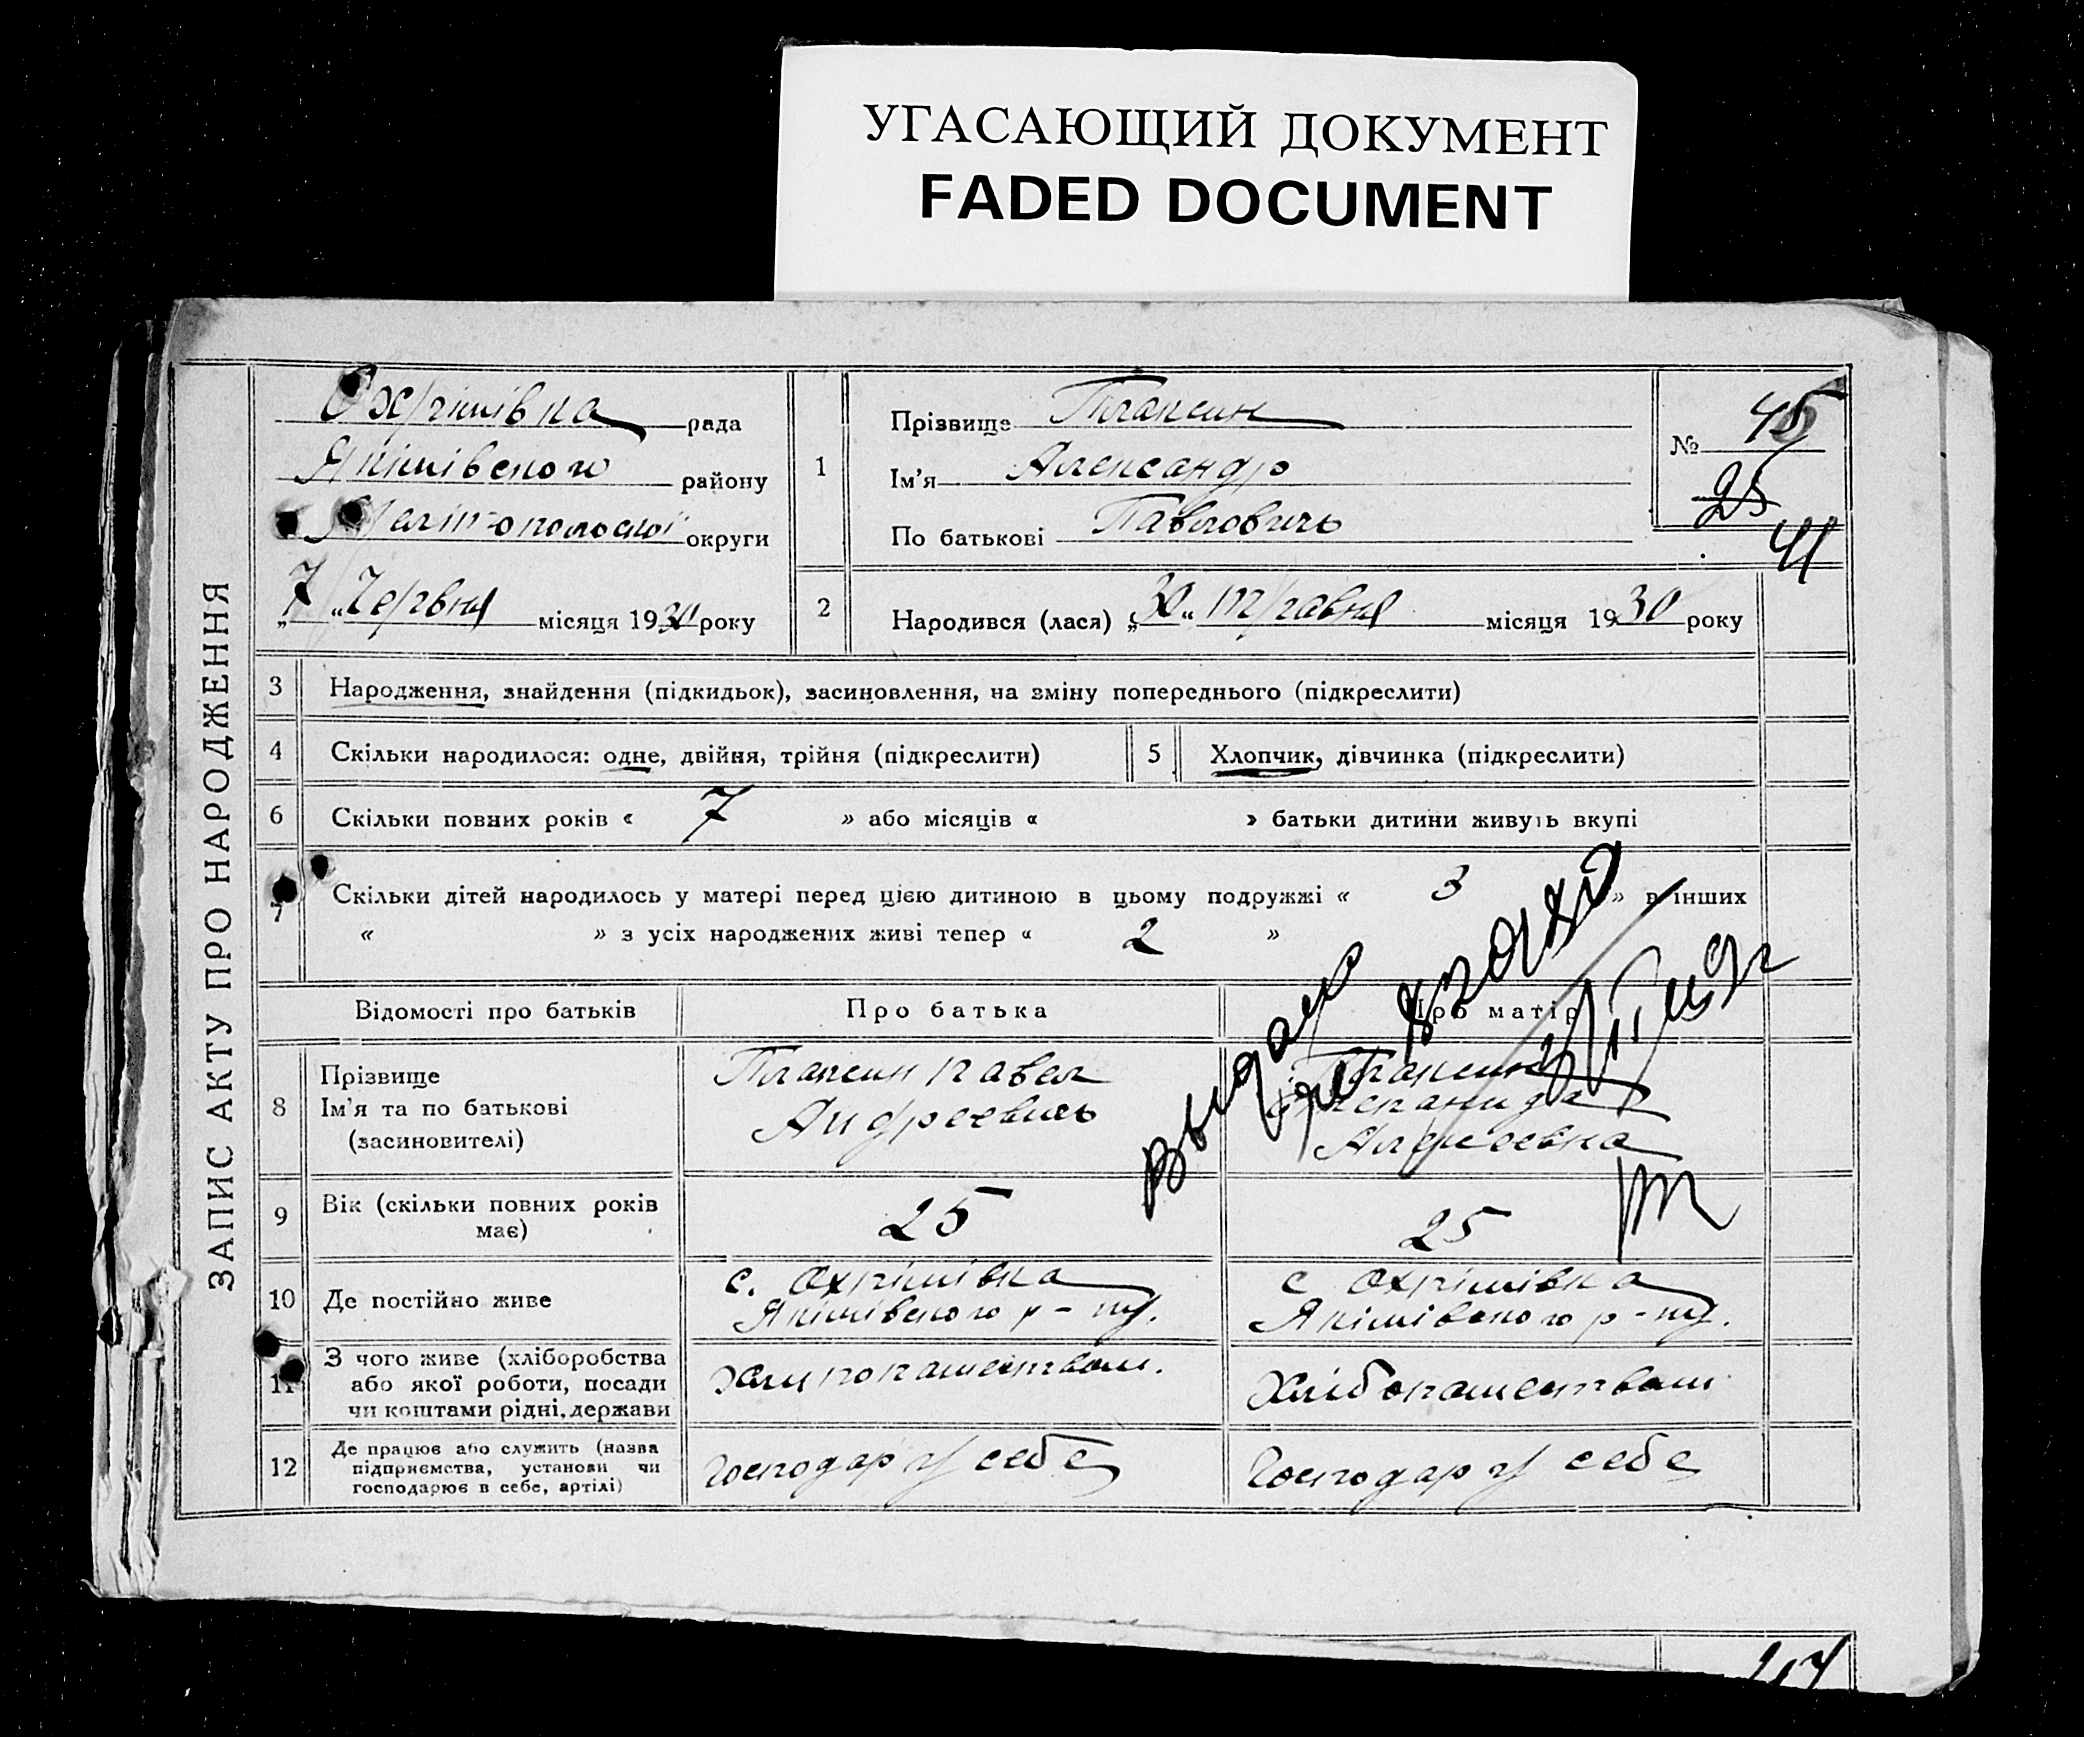 УГАСАЮЩИЙ ДОКУМЕНТ
FADED DOCUMENT
ЗАПИС АКТУ ПРО НАРОДЖЕННЯ
Охрімівка рада
Якімівського району
Мелітопольської округи
„ 7 “ Червня місяця 1930 року
1
Прізвище Плаксин
Ім'я Александр
По батькові Павловичь
№ 45
25
41
2
Народився (лася) „ 30 “ травня місяця 1930 року
3 Народження, знайдення (підкидьок), засиновлення, на зміну попереднього (підкреслити)
4 Скільки народилося: одне, двійня, трійня (підкреслити)
5 Хлопчик, дівчинка (підкреслити)
6 Скільки повних років « 7 » або місяців « » батьки дитини живуть вкупі
7 Скільки дітей народилось у матері перед цією дитиною в цьому подружжі « 3 » в інших
« » з усіх народжених живі тепер « 2 »
Відомості про батьків Про батька Про матір
8 Прізвище
Ім'я та по батькові
(засиновителі)
Плаксин Павел
Андреевичь
Плаксина
Степанида
Алексеевна
9 Вік (скільки повних років
має)
25
25
10 Де постійно живе
с. Охрімівка
Якімівського р-ну.
с Охрімівка
Якімівського р-ну.
11 З чого живе (хліборобства
або якої роботи, посади
чи коштами рідні, держави
Хлібопашеством
12 Де працює або служить (назва
підприємства, установи чи
господарює в себе, артілі)
Господар у себе
Господар у себе